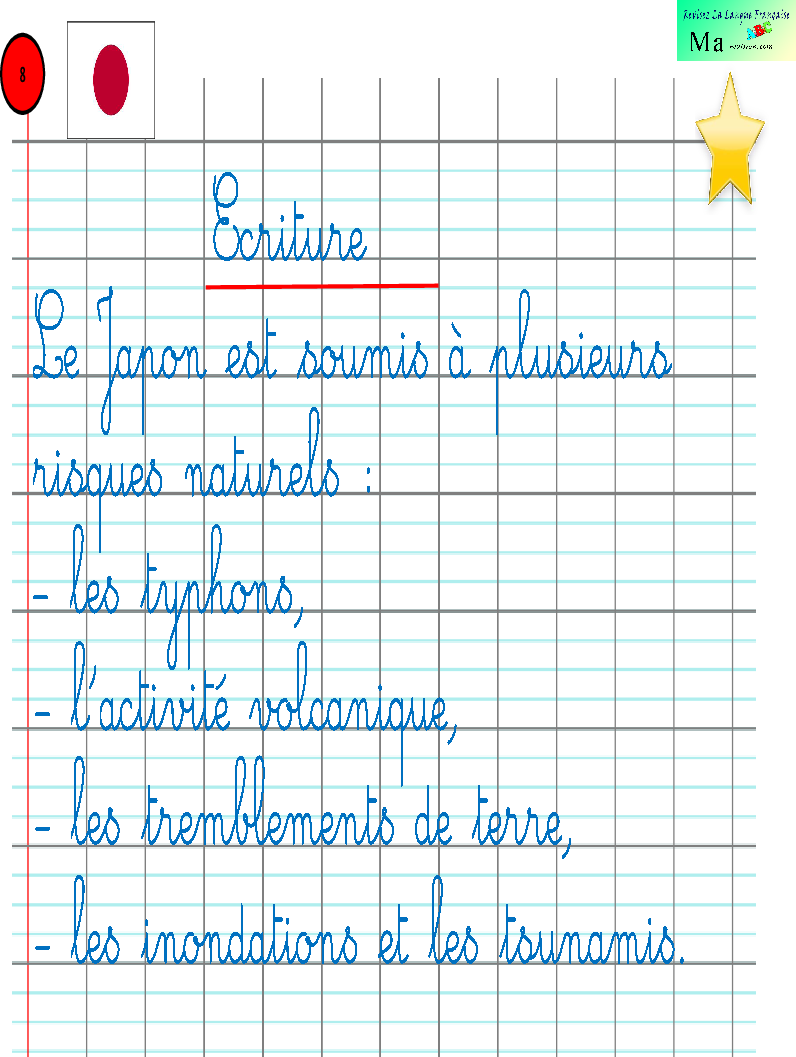 Revisez La Langue Française
8
Ma revision.com
Ecriture
Le Japon est soumis à plusieurs
risques naturels :
- les typhons,
- l'activité volcanique,
- les tremblements de terre,
- les inondations et les tsunamis.